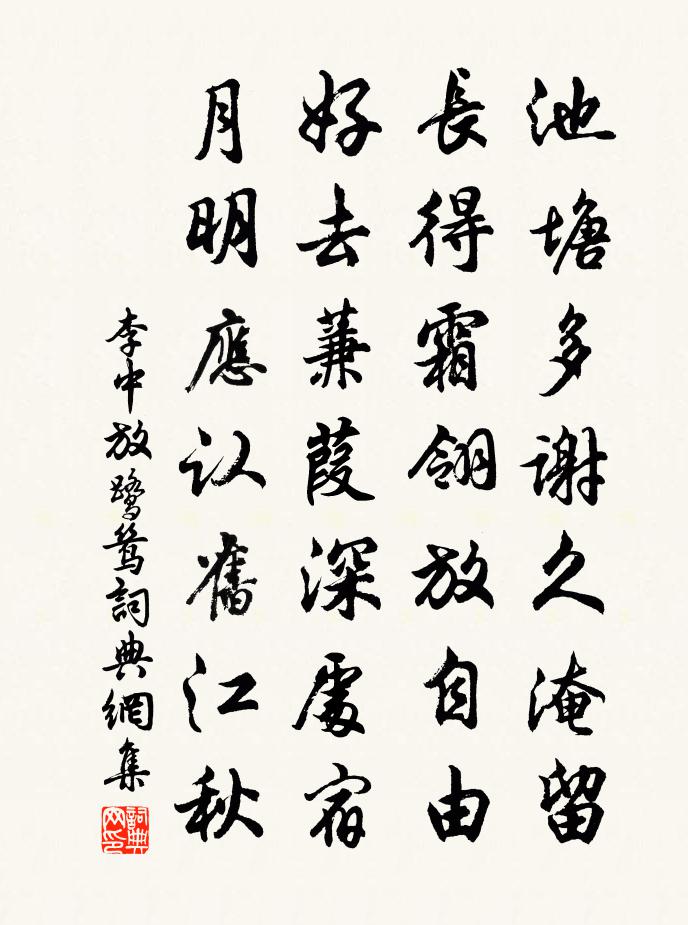 池塘多谢久淹留
長得霜翎放自由
好去蒹葭深處宿
月明應认舊江秋
李中放鷺鸶詞典網集
詞典网印